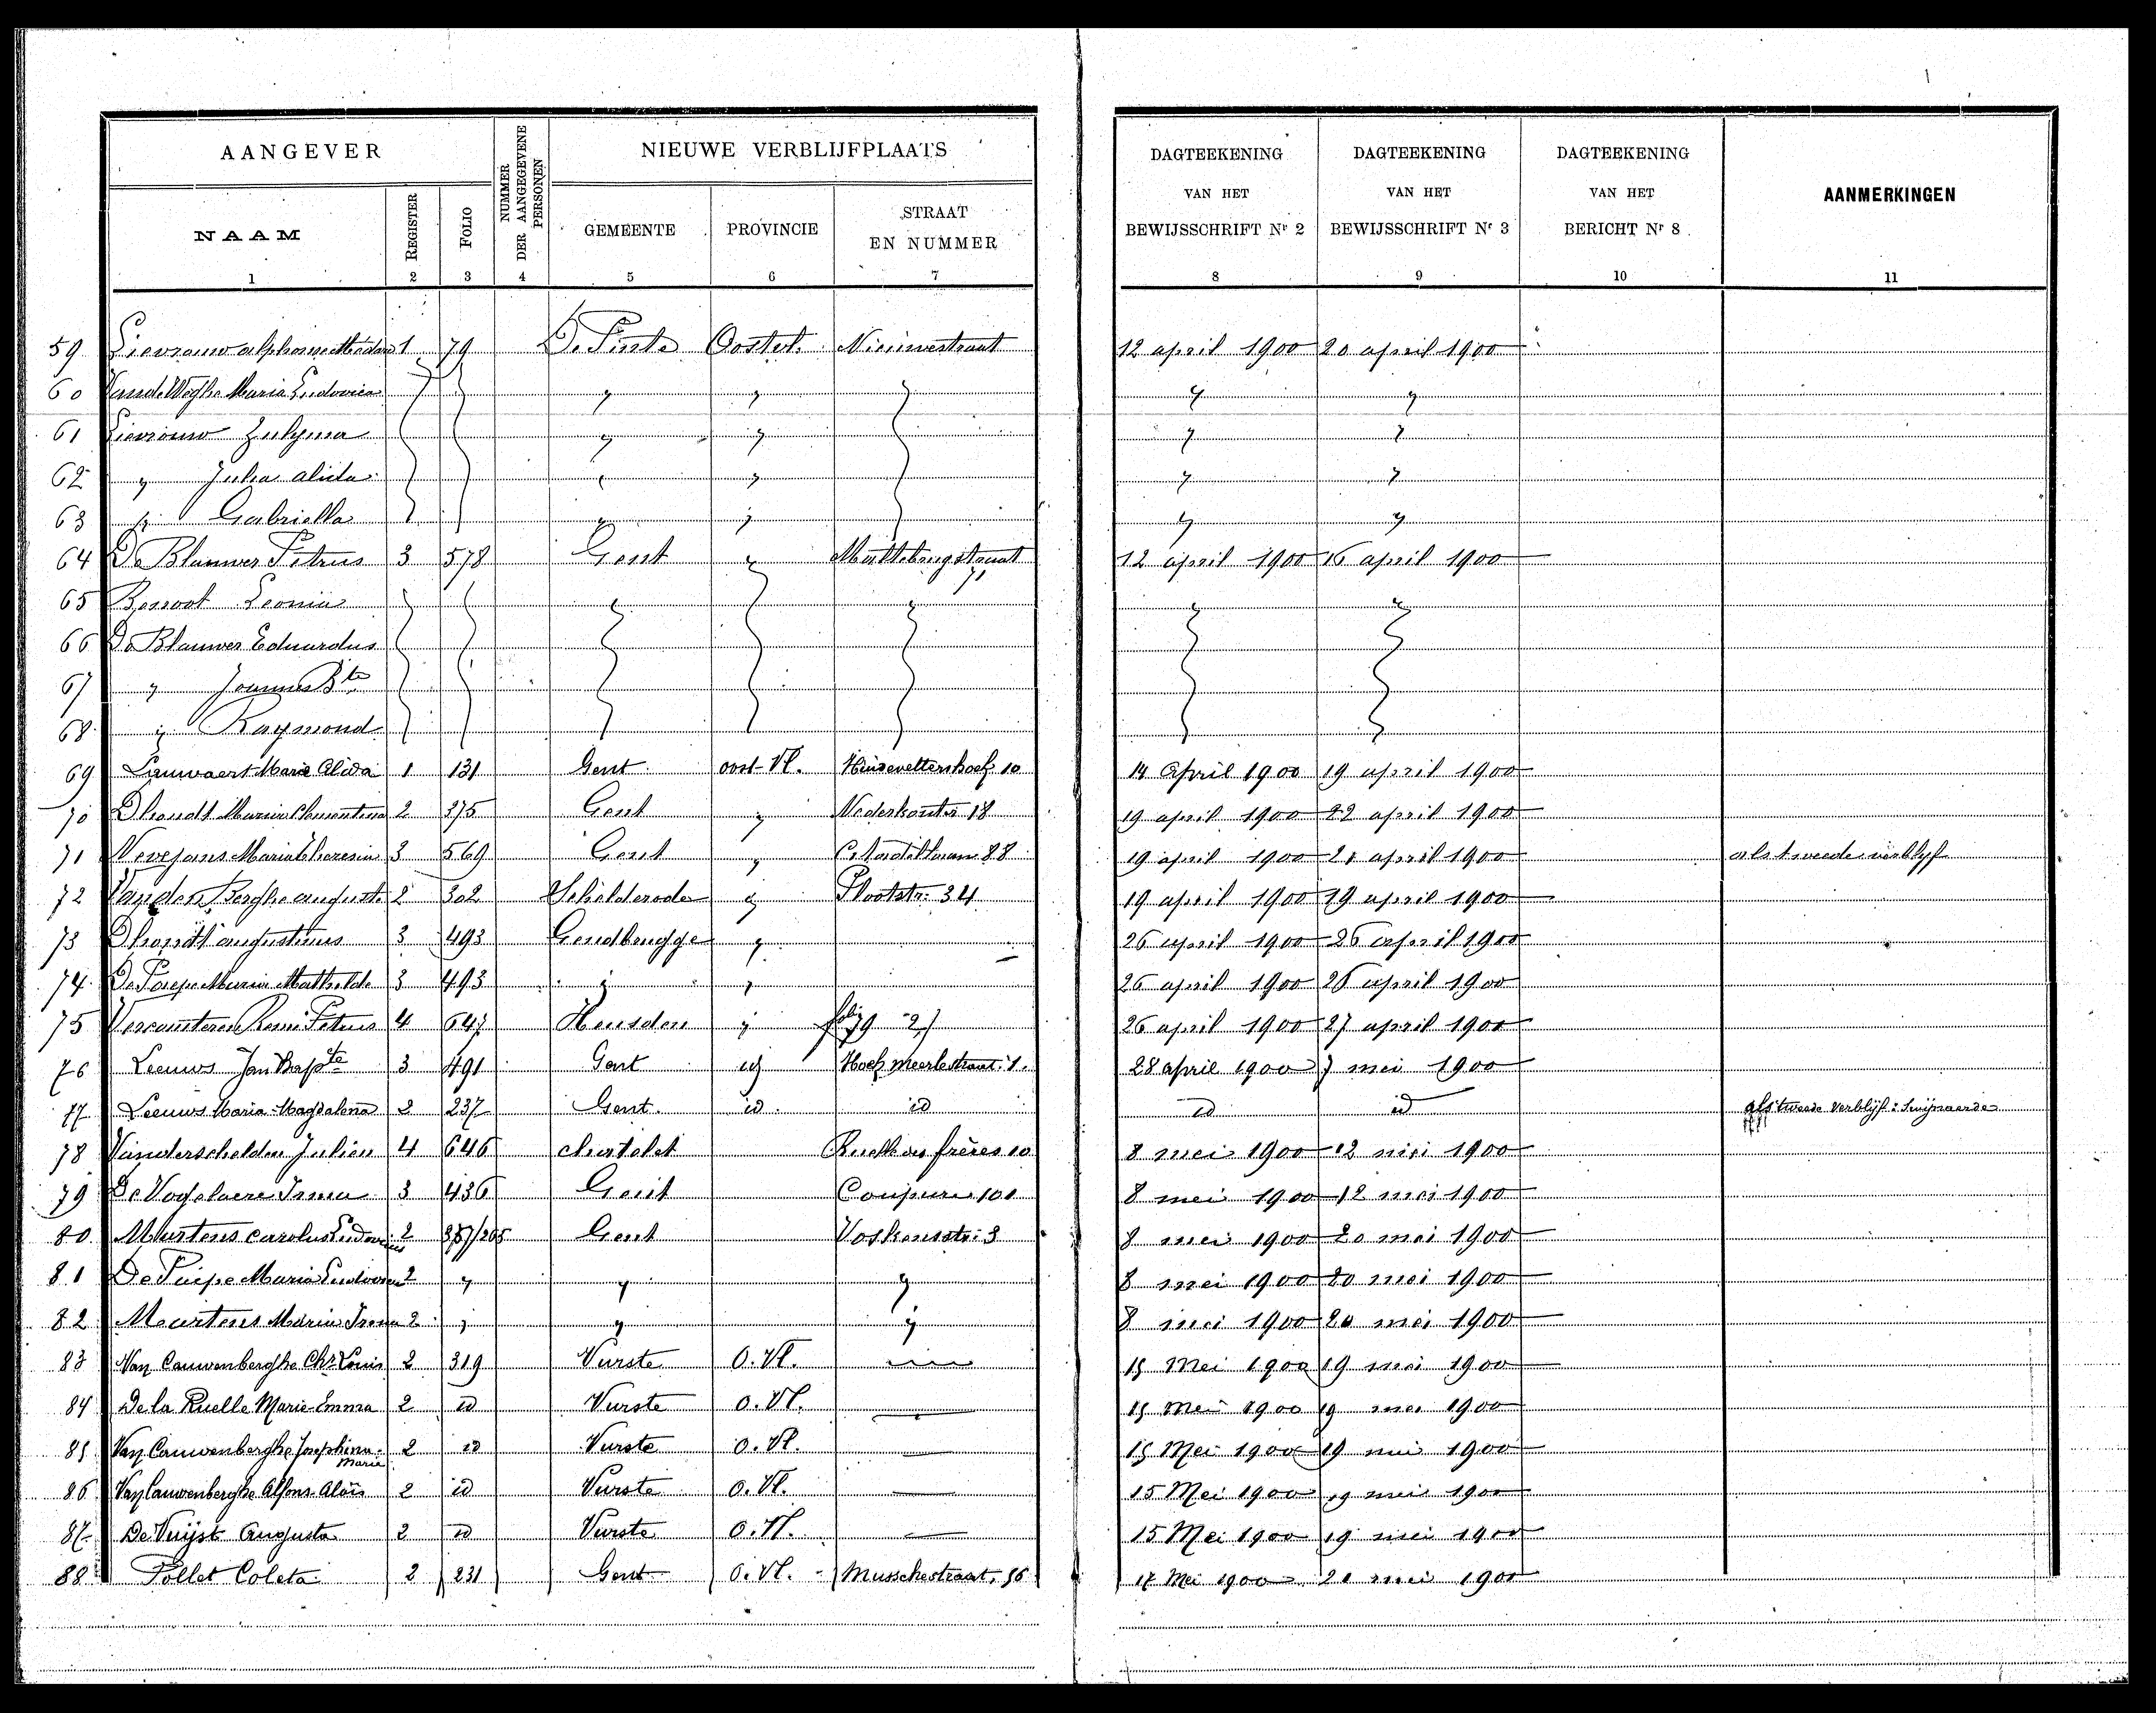 AANGEVER
NUMMER DER AANGEGEVENE PERSONEN
NIEUWE VERBLIJFPLAATS
DAGTEEKENING VAN HET BEWIJSSCHRIFT Nr 2
DAGTEEKENING VAN HET BEWIJSSCHRIFT Nr 3
DAGTEEKENING VAN HET BERICHT Nr 8
AANMERKINGEN
NAAM REGISTER FOLIO GEMEENTE PROVINCIE STRAAT EN NUMMER
1 2 3 4 5 6 7 8 9 10 11
59 Lievrouw alphonse 1 79 De Pinte Oostvl. Nieuwestraat 12 april 1900 20 april 1900
60 Van de Weghe Maria Ludovica " " " " "
61 Lievrouw Zulma " " " "
62 " Julia alida " " " "
63 " Gabriella " " " "
64 De Blauwer Petrus 3 578 Gent " 12 april 1900 16 april 1900
65 Leonia " " " "
66 De Blauwer Eduardus
67 " Joannes Bte
68 " Raymond
69 Lauwaert Marie Alida 1 131 Gent oost-Vl. 10 14 April 1900 19 april 1900
70 Dhondt Maria Clementina 2 375 Gent " Nederkouter 18 19 april 1900 22 april 1900
71 Nevejans Maria Theresia 3 569 Gent " Citadellaan 88 19 april 1900 21 april 1900 als tweede verblijf
72 Van den Berghe august 2 302 Schelderode " 34 19 april 1900 19 april 1900
73 Dhondt augustinus 3 493 Gendbrugge " 26 april 1900 26 april 1900
74 De Paepe Maria Mathilde 3 493 " " 26 april 1900 26 april 1900
75 Vercauteren Remi Petrus 4 647 Heusden " 26 april 1900 27 april 1900
76 Leeuws Jan Bapte 3 491 Gent id Hoek Meerlestraat 1. 28 april 1900 7 mei 1900
77 Leeuws Maria-Magdalena 2 237 Gent id id id id als tweede verblijf: Swijnaarde
78 Vanderschelden Julien 4 646 chatelet frères 10 8 mei 1900 12 mei 1900
79 De Vogelaere Irma 3 436 Gent Coupure 101 8 mei 1900 12 mei 1900
80 Martens carolus Ludovicus 2 Gent 3 8 mei 1900 20 mei 1900
81 De Paepe Maria Ludovica 2 " " " 8 mei 1900 20 mei 1900
82 Maertens Maria Irma 2 " " " 8 mei 1900 20 mei 1900
83 Van Cauwenberghe Chs Louis 2 319 Vurste O. Vl. 15 Mei 1900 19 mei 1900
84 De la Ruelle Marie-Emma 2 id Vurste O. Vl. 15 Mei 1900 19 mei 1900
85 Van Cauwenberghe Josephina-Marie 2 id Vurste O. Vl. 15 Mei 1900 19 mei 1900
86 Van Cauwenberghe Alfons-Aloïs 2 id Vurste O. Vl. 15 Mei 1900 19 mei 1900
87 De Vuijst Augusta 2 id Vurste O. Vl. 15 Mei 1900 19 mei 1900
88 Pollet Coleta 2 231 Gent O. Vl. Musschestraat, 56 17 Mei 1900 21 mei 1900